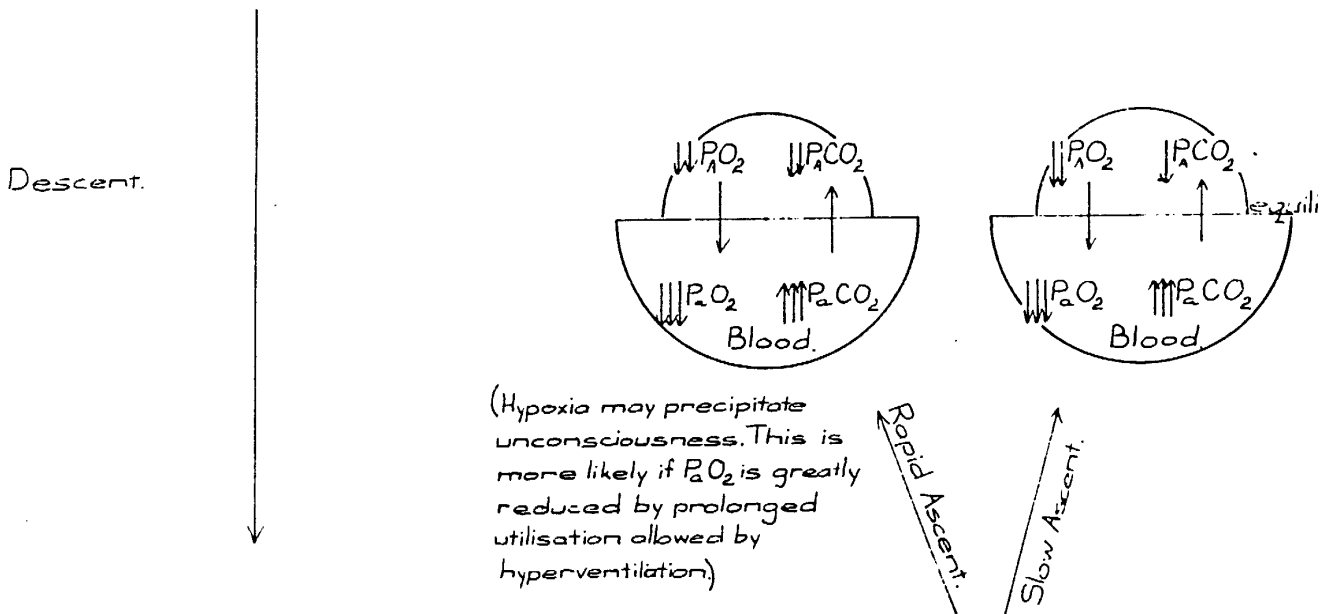 Descent.
↓↓PAO2 ↓↓PACO2
↓↓↓PaO2 ↑↑↑PaCO2
Blood.
↓↓PAO2 ↓PACO2
equili
↓↓↓PaO2 ↑↑↑PaCO2
Blood.
(Hypoxia may precipitate
unconsciousness. This is
more likely if PaO2 is greatly
reduced by prolonged
utilisation allowed by
hyperventilation.)
Rapid Ascent.
Slow Ascent.